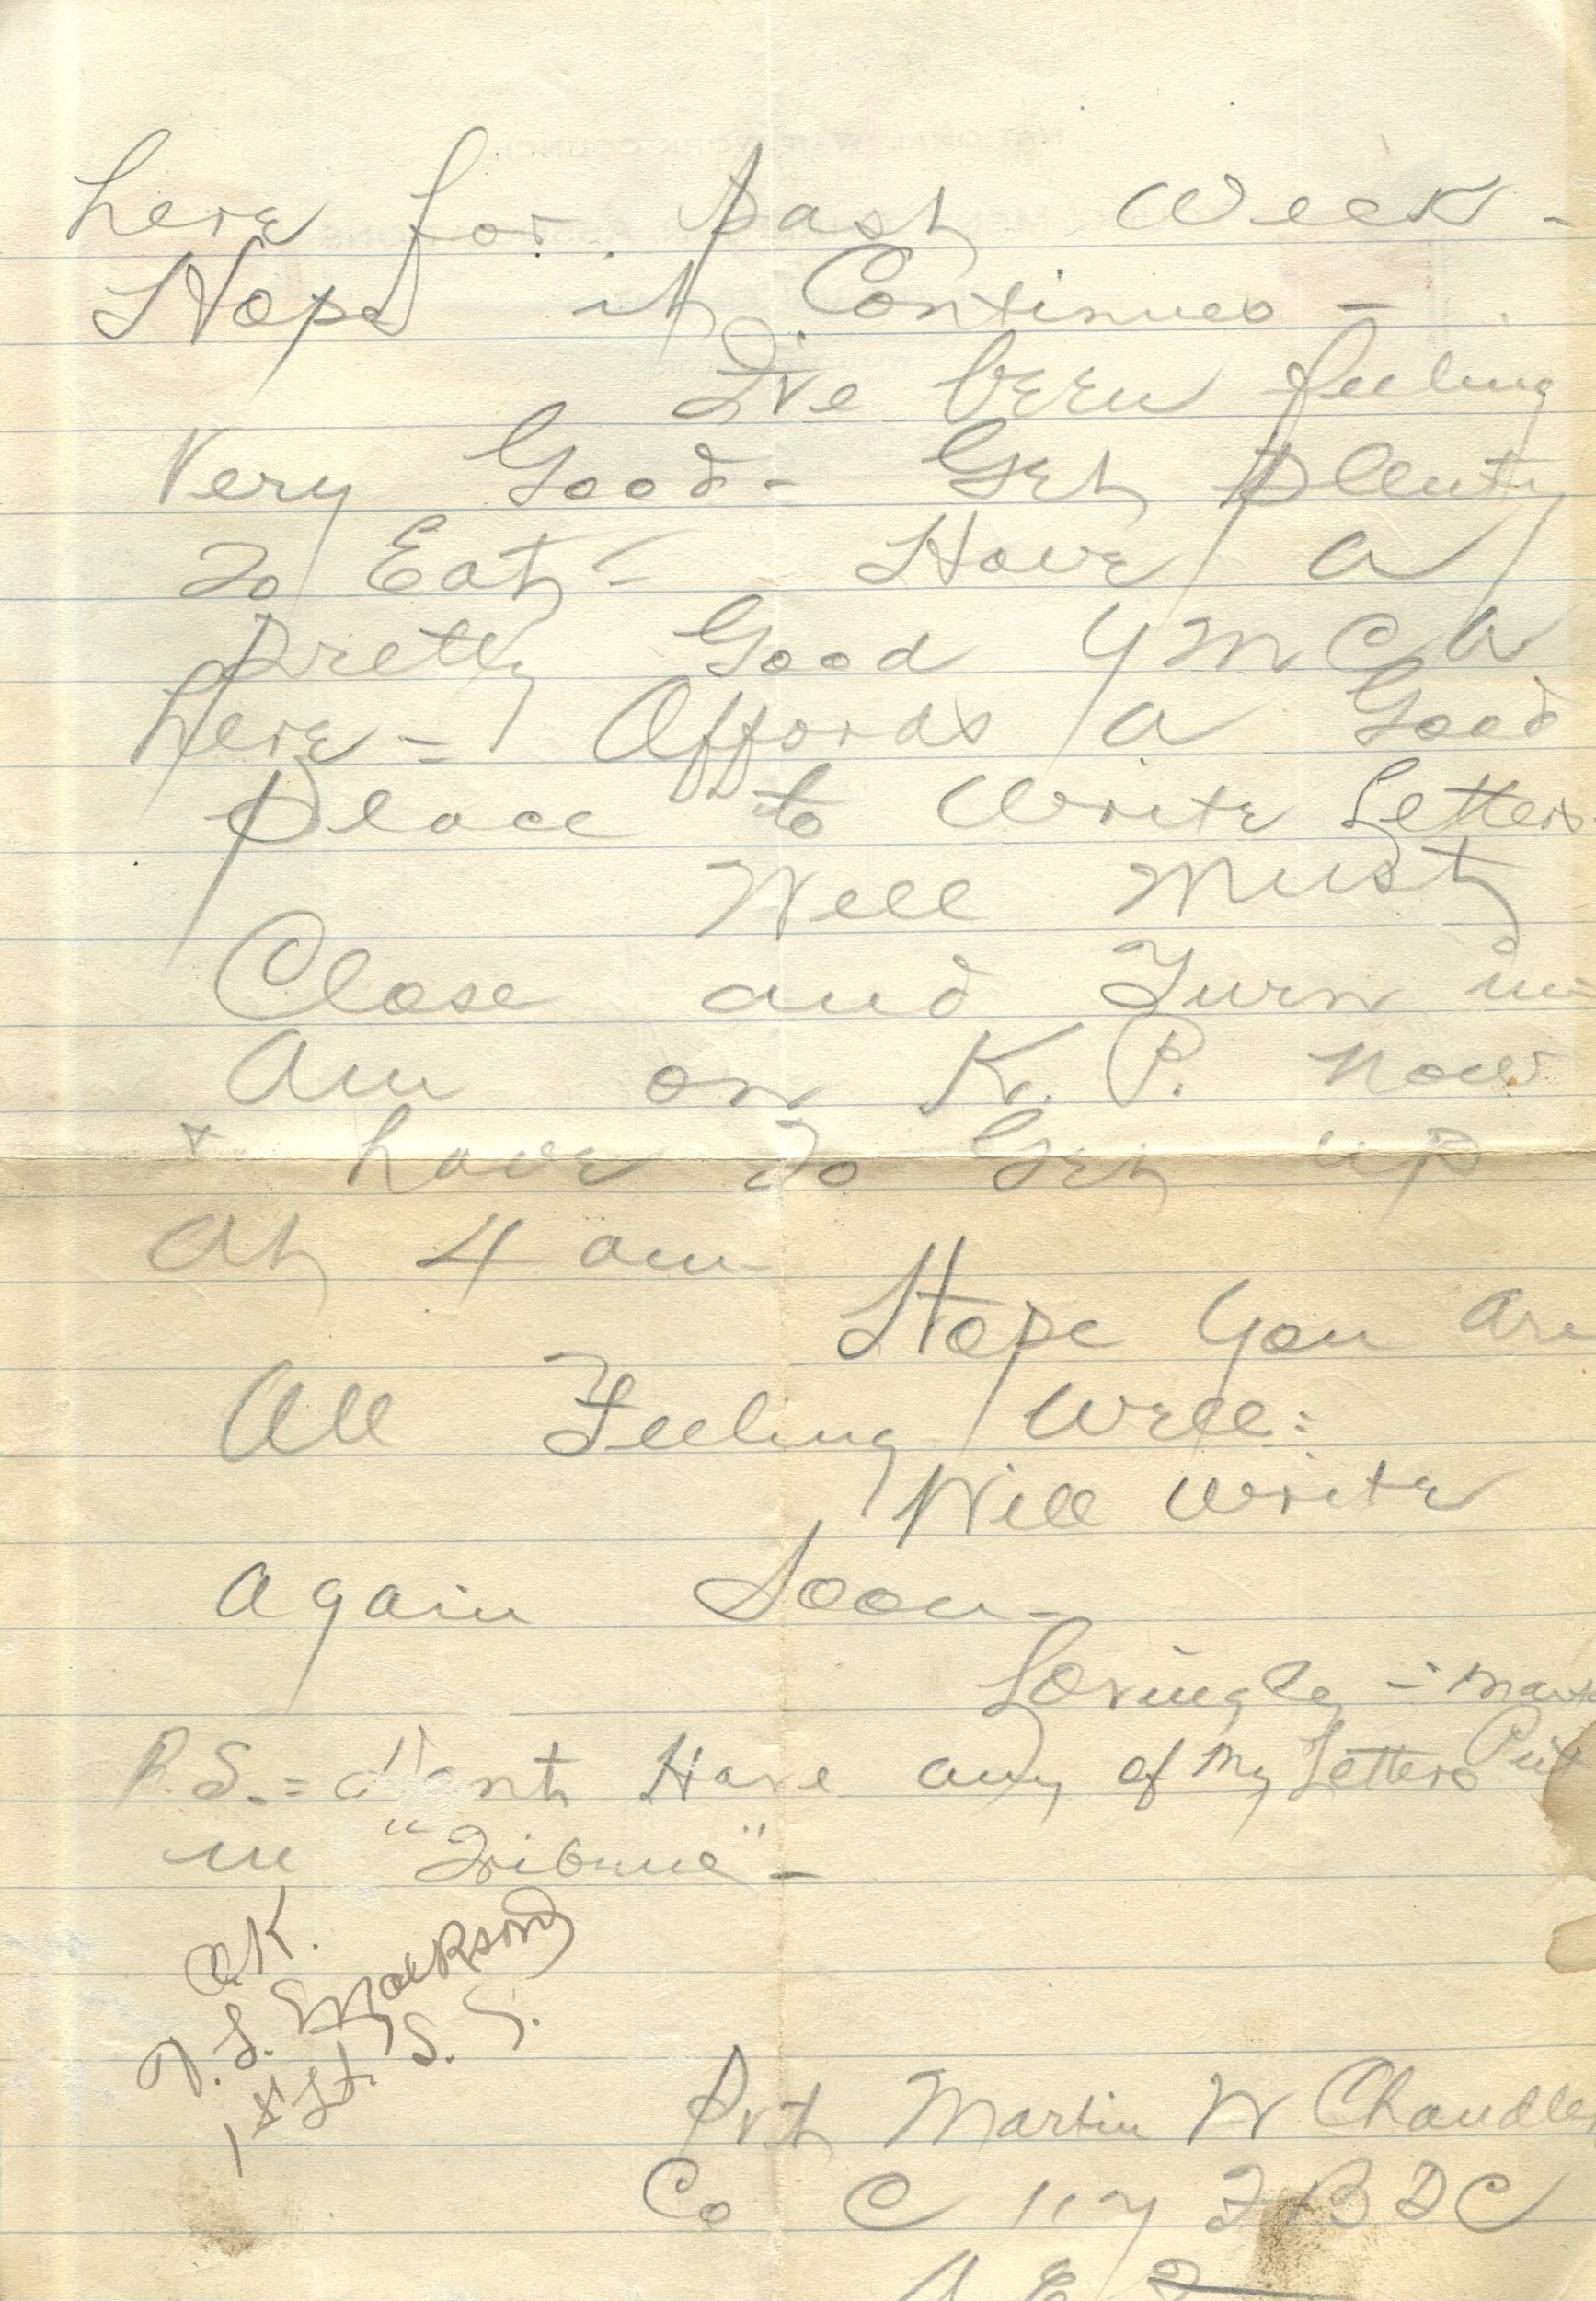 here for past week -
Hope it Continues -
I've been feeling
Very Good - Get plenty
To Eat - Have a
pretty Good YMCA
here - Affords a Good
place to write Letters.
Well must
Close and Turn in -
Am on K. P. now
+ have To Get up
At 4 am
Hope You Are
All Feeling Well:
Will write
again Soon -
Lovingly - Mart
P.S. = don't Have any of My Letters Put
in "Tribune" -
O.K.
1st Lt. S. S.
Pvt Martin W Chandler
Co C 117 F B D C
A E F